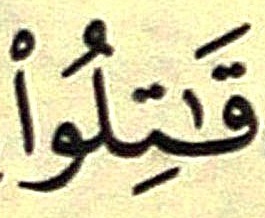 قَٰتِلُوا۟